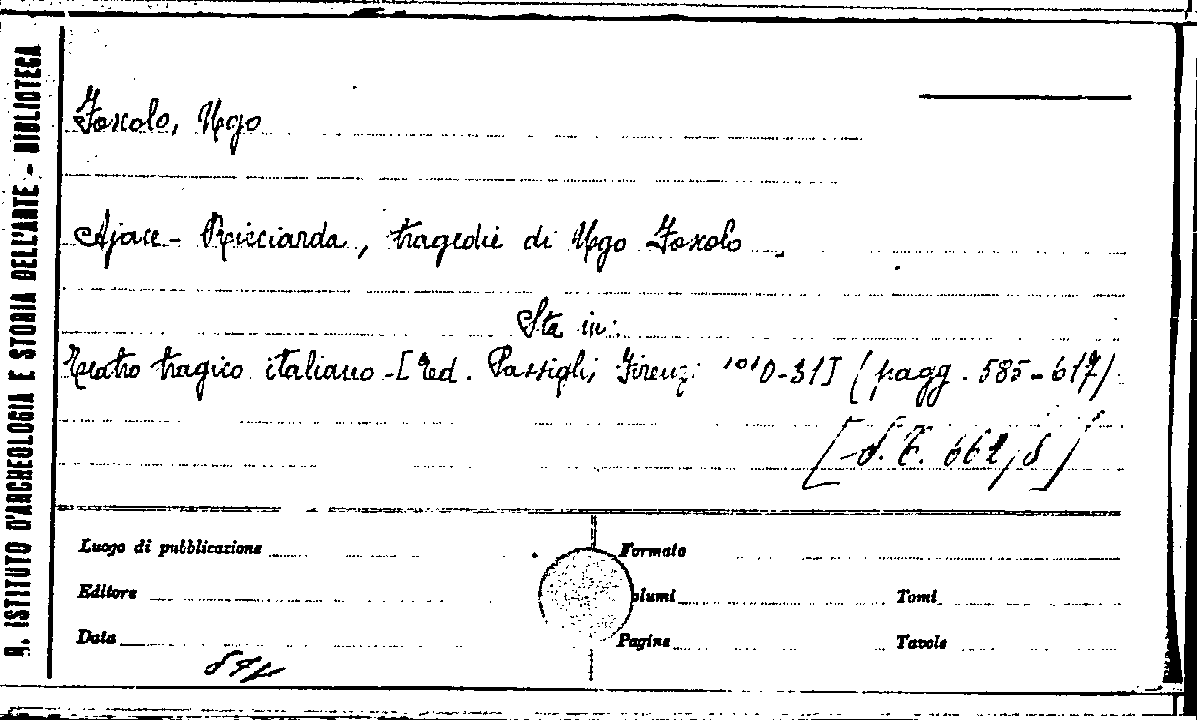 R. ISTITUTO D'ARCHEOLOGIA E STORIA DELL'ARTE - BIBLIOTECA
Foscolo, Ugo
Ajace - Ricciarda, tragedie di Ugo Foscolo
Sta in:
Teatro tragico italiano - [Ed. Passigli, Firenze (pagg. 585-617)
[S. T. 662/8]
Luogo di pubblicazione
Formato
Editore
Volumi
Tomi
Data
Pagine
Tavole